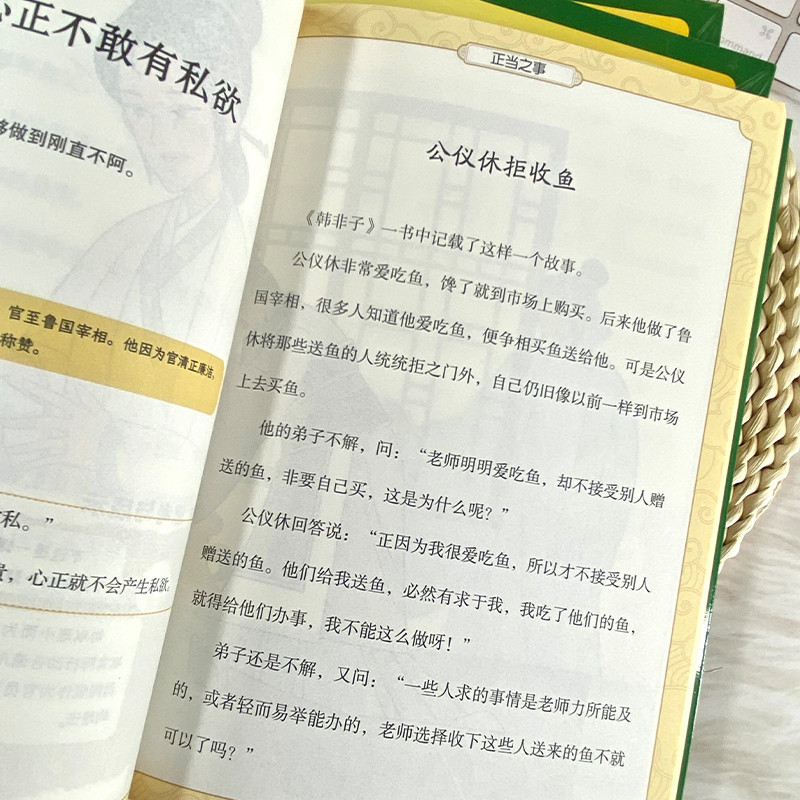 心正不敢有私欲
够做到刚直不阿。
官至鲁国宰相。他因为官清正廉洁,
称赞。
私。”
贵，心正就不会产生私欲。
正当之事
公仪休拒收鱼
《韩非子》一书中记载了这样一个故事。
公仪休非常爱吃鱼，馋了就到市场上购买。后来他做了鲁
国宰相，很多人知道他爱吃鱼，便争相买鱼送给他。可是公仪
休将那些送鱼的人统统拒之门外，自己仍旧像以前一样到市场
上去买鱼。
他的弟子不解，问：“老师明明爱吃鱼，却不接受别人赠
送的鱼，非要自己买，这是为什么呢？”
公仪休回答说：“正因为我很爱吃鱼，所以才不接受别人
赠送的鱼。他们给我送鱼，必然有求于我，我吃了他们的鱼，
就得给他们办事，我不能这么做呀！”
弟子还是不解，又问：“一些人求的事情是老师力所能及
的，或者轻而易举能办的，老师选择收下这些人送来的鱼不就
可以了吗？”
command